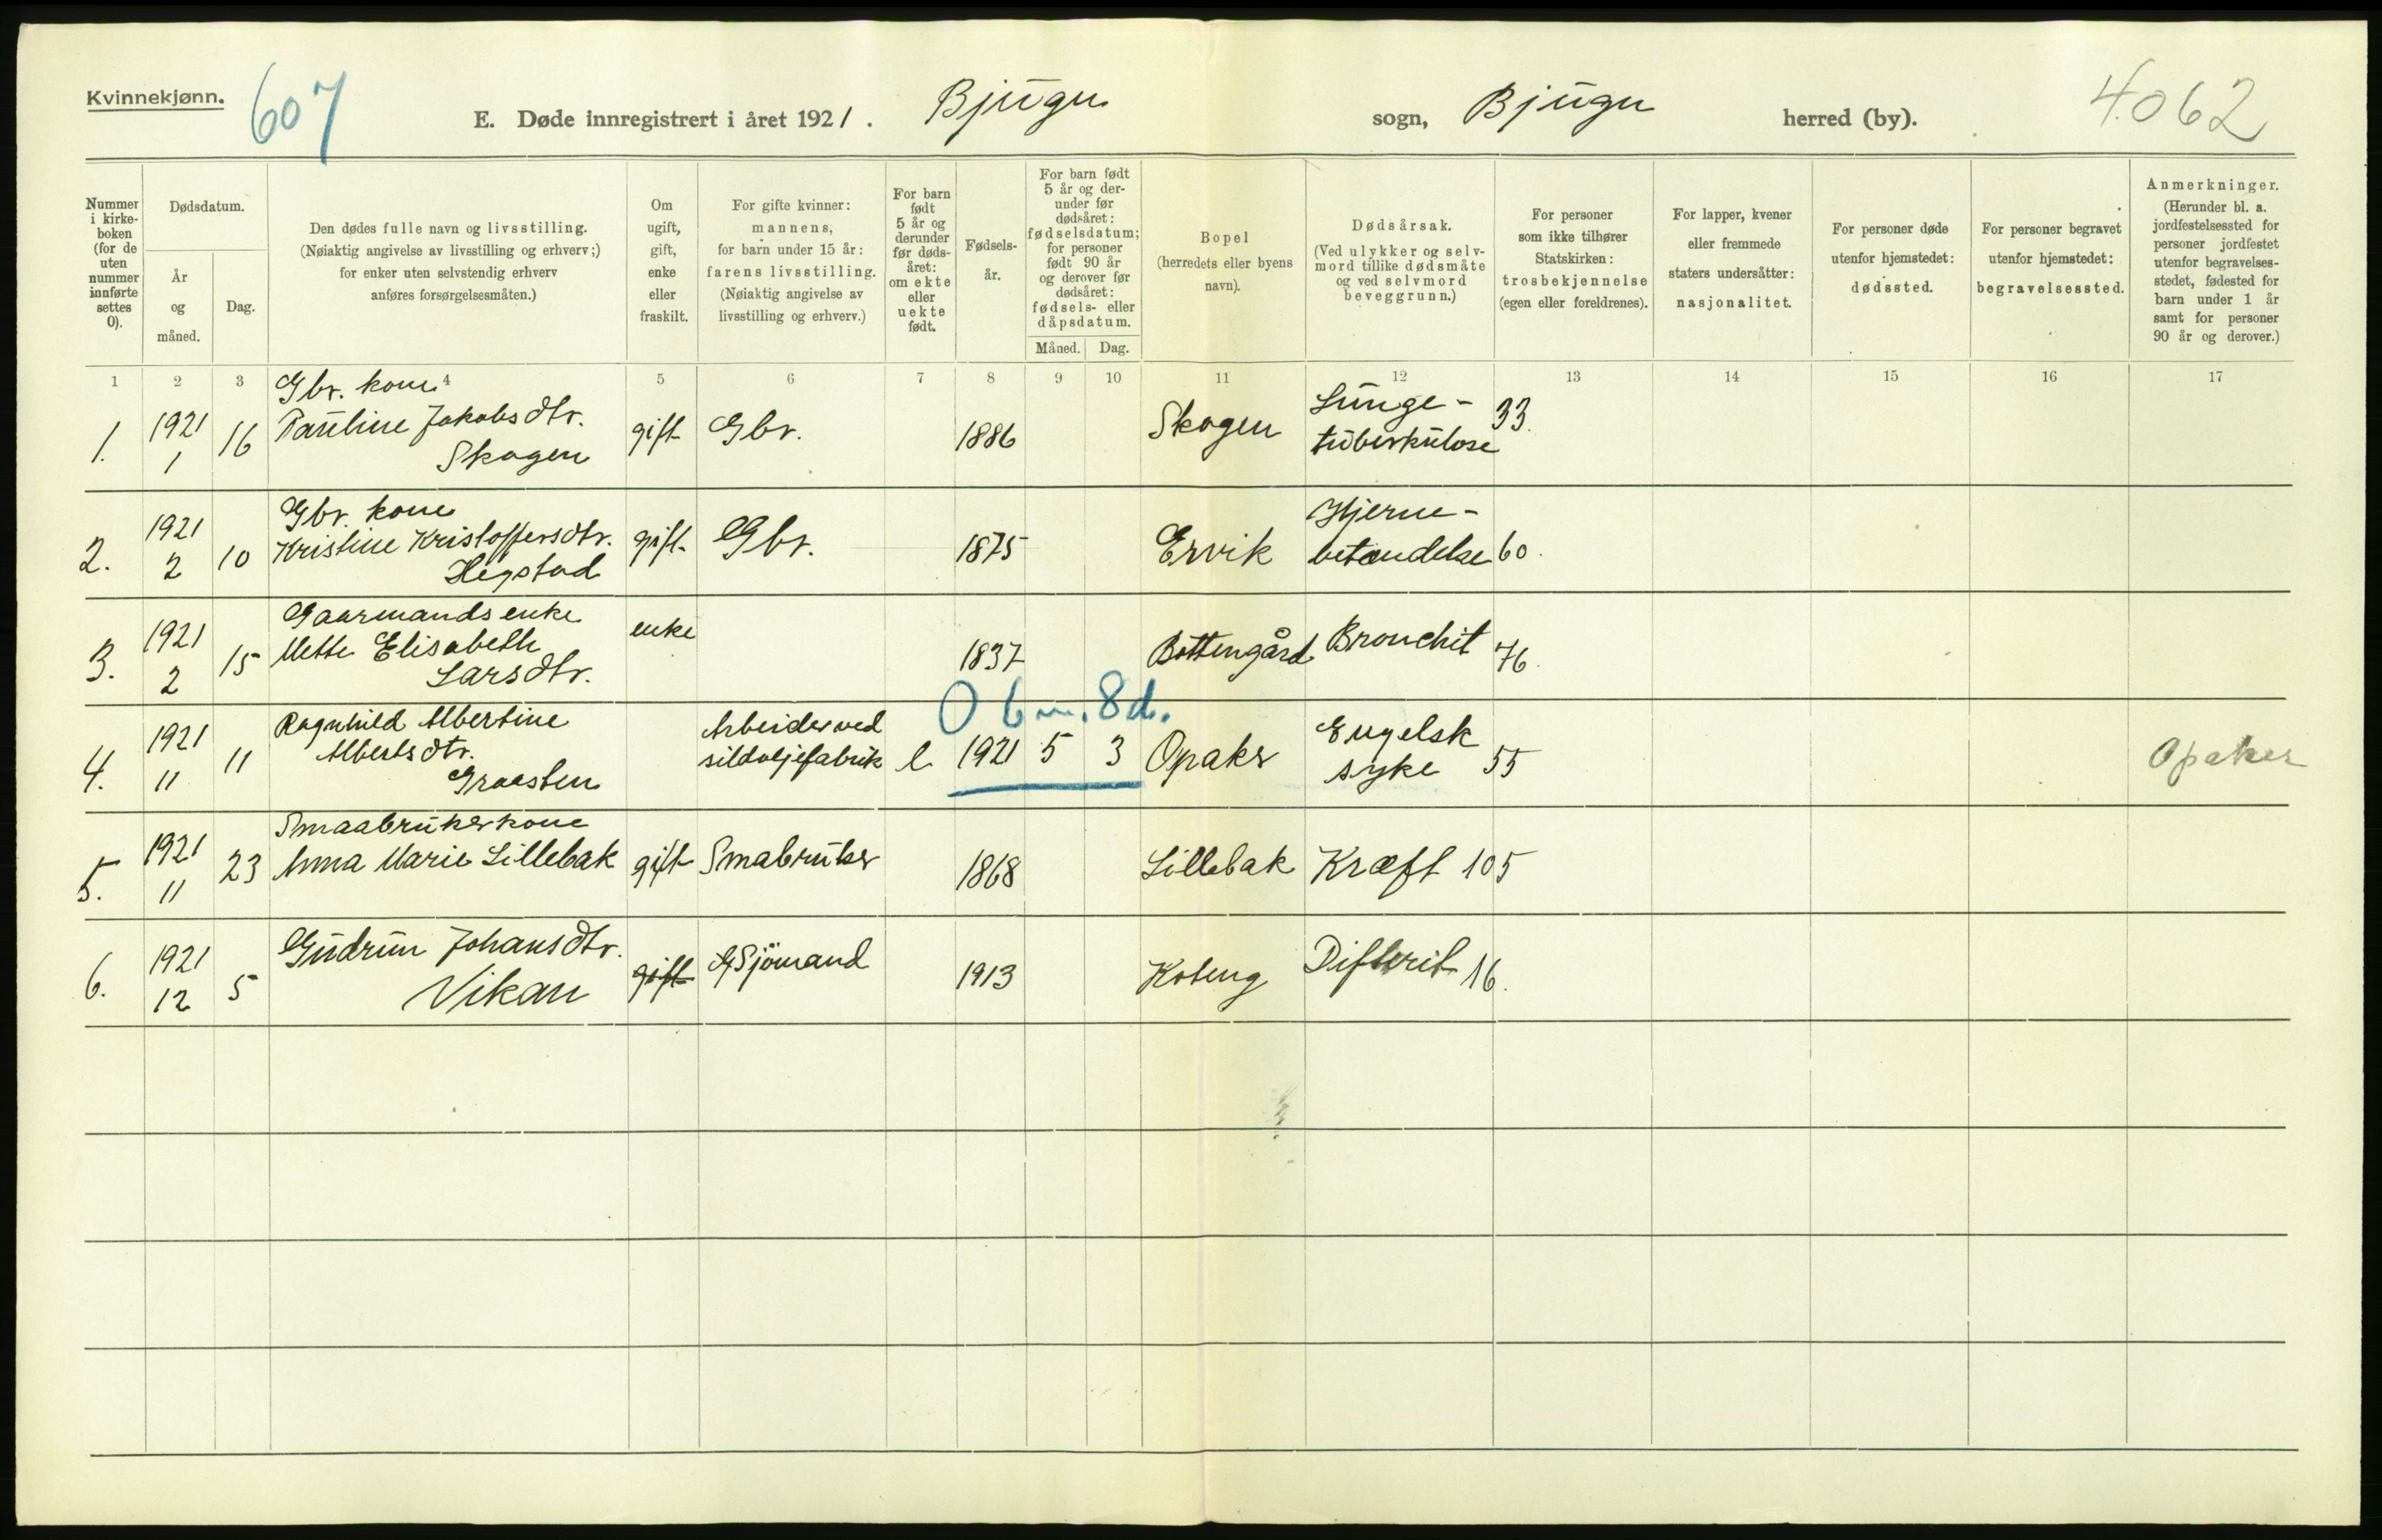 Kvinnekjønn.
607
E. Døde innregistrert i året 1921. Bjugn sogn, Bjugn herred (by).
4062
Nummer i kirke- boken (for de uten nummer innførte settes 0).
Dødsdatum.
År og måned.
Dag.
Den dødes fulle navn og livsstilling.
(Nøiaktig angivelse av livsstilling og erhverv;)
for enker uten selvstendig erhverv
anføres forsørgelsesmåten.)
Om ugift, gift, enke eller fraskilt.
For gifte kvinner:
mannens,
for barn under 15 år:
farens livsstilling.
(Nøiaktig angivelse av
livsstilling og erhverv.)
For barn født 5 år og derunder før døds- året: om ekte eller uekte født.
Fødsels- år.
For barn født 5 år og der- under før dødsåret: fødselsdatum; for personer født 90 år og derover før dødsåret: fødsels- eller dåpsdatum.
Måned. Dag.
Bopel
(herredets eller byens
navn).
Dødsårsak.
(Ved ulykker og selv-
mord tillike dødsmåte
og ved selvmord
beveggrunn.)
For personer
som ikke tilhører
Statskirken:
trosbekjennelse
(egen eller foreldrenes).
For lapper, kvener
eller fremmede
staters undersåtter:
nasjonalitet.
For personer døde
utenfor hjemstedet:
dødssted.
For personer begravet
utenfor hjemstedet:
begravelsessted.
Anmerkninger.
(Herunder bl. a.
jordfestelsessted for
personer jordfestet
utenfor begravelses-
stedet, fødested for
barn under 1 år
samt for personer
90 år og derover.)
1 2 3 4 5 6 7 8 9 10 11 12 13 14 15 16 17
Gbr. kone
1. 1921 1 16 Pauline Jakobsdtr. Skogen gift Gbr. 1886 Skogen Lunge- tuberkulose 33.
Gbr. kone
2. 1921 2 10 Kristine Kristoffersdtr. Hegstad gift. Gbr. 1875 Ervik Hjerne- betændelse 60.
Gaarmands enke
3. 1921 2 15 Mette Elisabeth Larsdtr. enke 1837 Bottengård Bronchit 76.
0 6 m. 8 d.
4. 1921 11 11 Ragnhild Albertine Albertsdtr. Graasten Arbeider ved sildoljefabrik e 1921 5 3 Opaker Engelsk syke 55 Opaker
Smaabrukerkone
5. 1921 11 23 Anna Marie Lillebak gift Smabruker 1868 Lillebak Kræft 105
6. 1921 12 5 Gudrun Johansdtr. Vikan gift Sjömand 1913 Koteng Difterit 16.